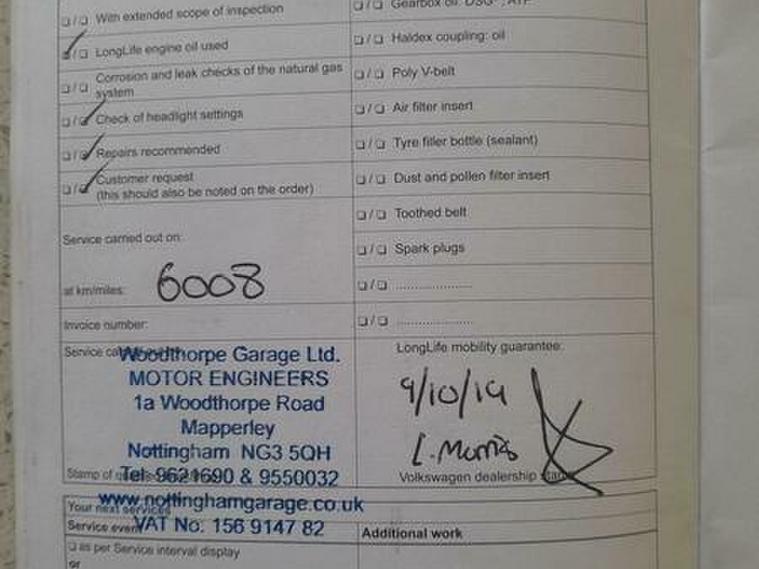 ❑/❑ With extended scope of inspection
❑/❑ LongLife engine oil used
❑/❑ Corrosion and leak checks of the natural gas
system
❑/❑ Check of headlight settings
❑/❑ Repairs recommended
❑/❑ Customer request
(this should also be noted on the order)
Service carried out on:
at km/miles: 6008
Invoice number:
Service
Woodthorpe Garage Ltd.
MOTOR ENGINEERS
1a Woodthorpe Road
Mapperley
Nottingham NG3 5QH
Stamp of
Tel: 9621690 & 9550032
www.nottinghamgarage.co.uk
Your next services
Service event
VAT No. 156 9147 82
❑ as per Service interval display
or
❑/❑ Gearbox oil: DSG
❑/❑ Haldex coupling: oil
❑/❑ Poly V-belt
❑/❑ Air filter insert
❑/❑ Tyre filler bottle (sealant)
❑/❑ Dust and pollen filter insert
❑/❑ Toothed belt
❑/❑ Spark plugs
❑/❑ ......................
❑/❑ ......................
LongLife mobility guarantee:
9/10/19
L. Morris
Volkswagen dealership stamp
Additional work